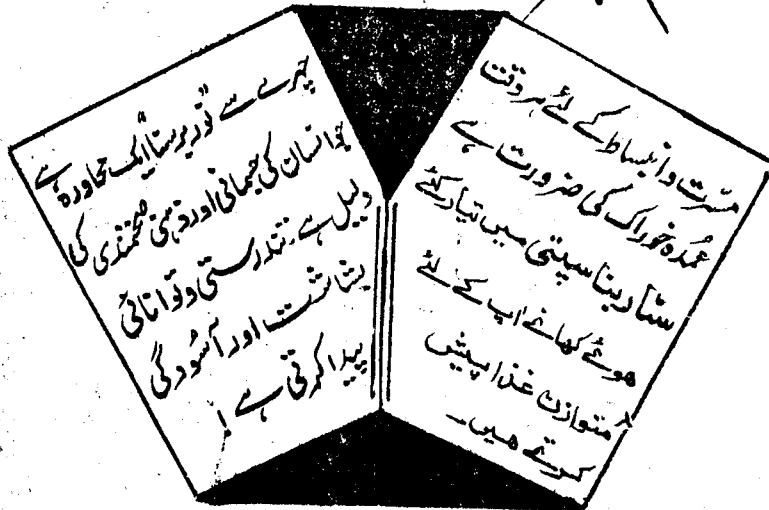 مسّرت و انبساط کے لئے ہر وقت
عمُدہ خوراک کی ضرورت ہے
ستارہ بناسپتی میں تیار کئے
ھوئے کھانے آپ کے لئے
متوازن غذا پیش
کرتے ھیں۔
چہرے سے نُور برسنا ایک محاورہ ہے
جو انسان کی جسمانی اور ذہنی صحتمندی کی
دلیل ہے۔ تندرستی و توانائی
بشاشت اور آسُودگی
پیدا کرتی ہے !